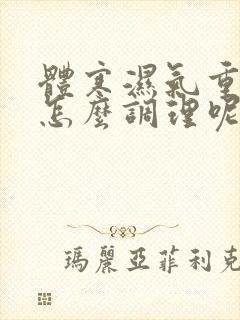 體寒濕氣重
怎麼調理呢
瑪麗亞菲利克